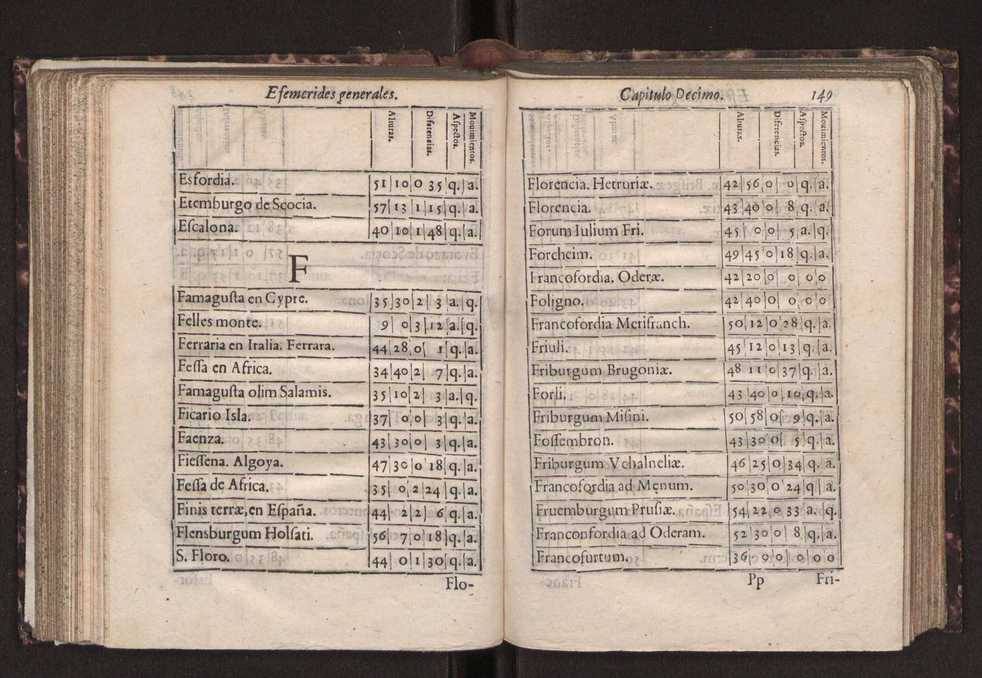 Efemerides generales.
Alturas. Diferencias. Aspectos. Mouimientos.
Esfordia. 51 10 0 35 q. a.
Etemburgo de Scocia. 57 13 1 15 q. a.
Escalona. 40 10 1 48 q. a.
F
Famagusta en Cypre. 35 30 2 3 a. q.
Felles monte. 9 0 3 12 a. q.
Ferraria en Italia. Ferrara. 44 28 0 1 q. a.
Fessa en Africa. 34 40 2 7 q. a.
Famagusta olim Salamis. 35 10 2 3 a. q.
Ficario Isla. 37 0 0 3 q. a.
Faenza. 43 30 0 3 q. a.
Fiessena. Algoya. 47 30 0 18 q. a.
Fessa de Africa. 35 0 2 24 q. a.
Finis terræ, en España. 44 2 2 6 q. a.
Flensburgum Holsati. 56 7 0 18 q. a.
S. Floro. 44 0 1 30 q. a.
Flo-
Capitulo Decimo. 149
Alturas. Diferencias. Aspectos. Mouimientos.
Florencia. Hetruriæ. 42 56 0 0 q. a.
Florencia. 43 40 0 8 q. a.
Forum Iulium Fri. 45 0 0 5 a. q.
Forcheim. 49 45 0 18 q. a.
Francofordia. Oderæ. 42 20 0 0 0 0
Foligno. 42 40 0 0 0 0
Francofordia Merifranch. 50 12 0 28 q. a.
Friuli. 45 12 0 13 q. a.
Friburgum Brugoniæ. 48 11 0 37 q. a.
Forli. 43 40 0 10 q. a.
Friburgum Misini. 50 58 0 9 q. a.
Fossembron. 43 30 0 5 q. a.
Friburgum Vchalneliæ. 46 25 0 34 q. a.
Francofordia ad Menum. 50 30 0 24 q a.
Fruemburgum Prusiæ. 54 22 0 33 a. q.
Franconfordia ad Oderam. 52 30 0 8 q. a.
Francofurtum. 36 0 0 0 0 0
Pp Fri-